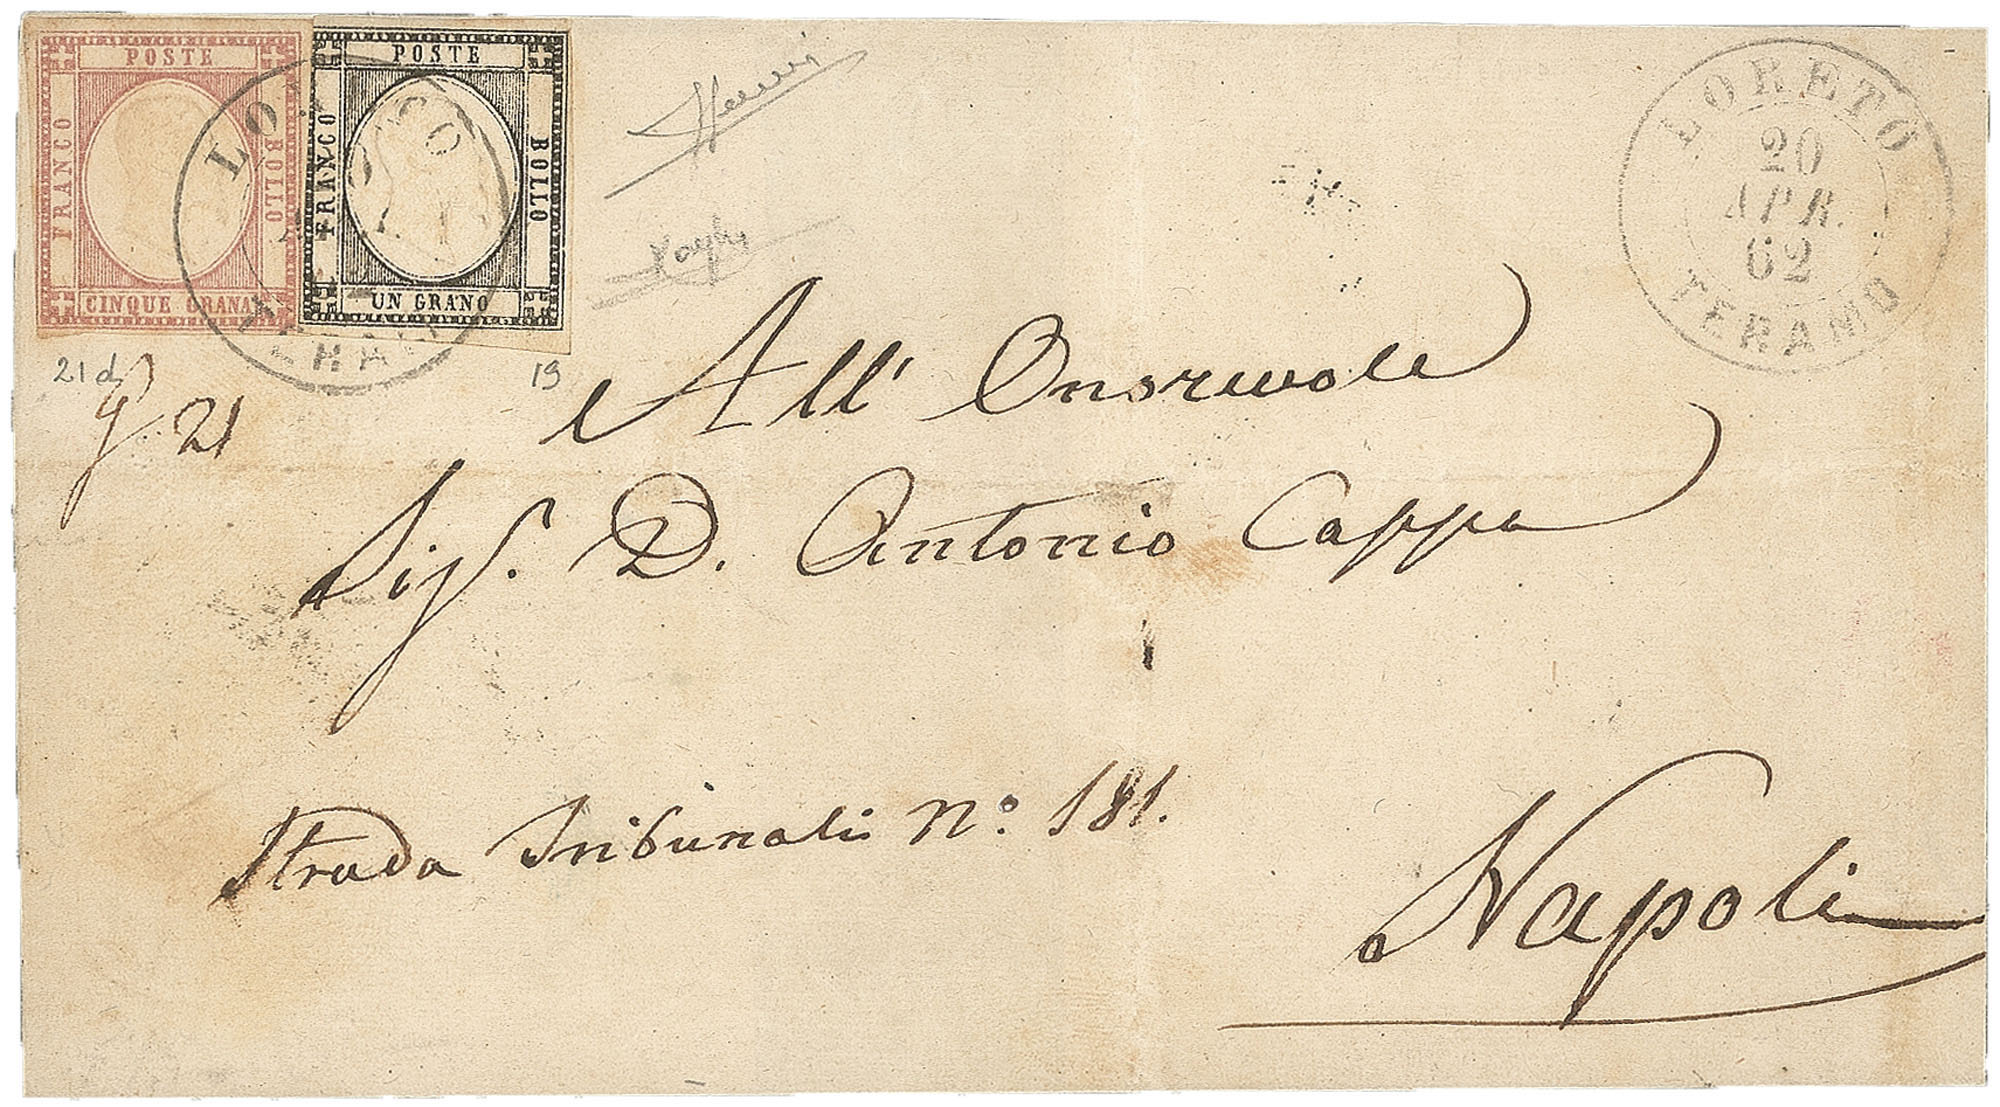 POSTE
FRANCO
BOLLO
CINQUE GRANA
POSTE
FRANCO
BOLLO
UN GRANO
LORETO
20
APR.
62
TERAMO
21d
19
21
All' Onorevole
Sig. D. Antonio Cappa
Strada Tribunali N.º 181.
Napoli